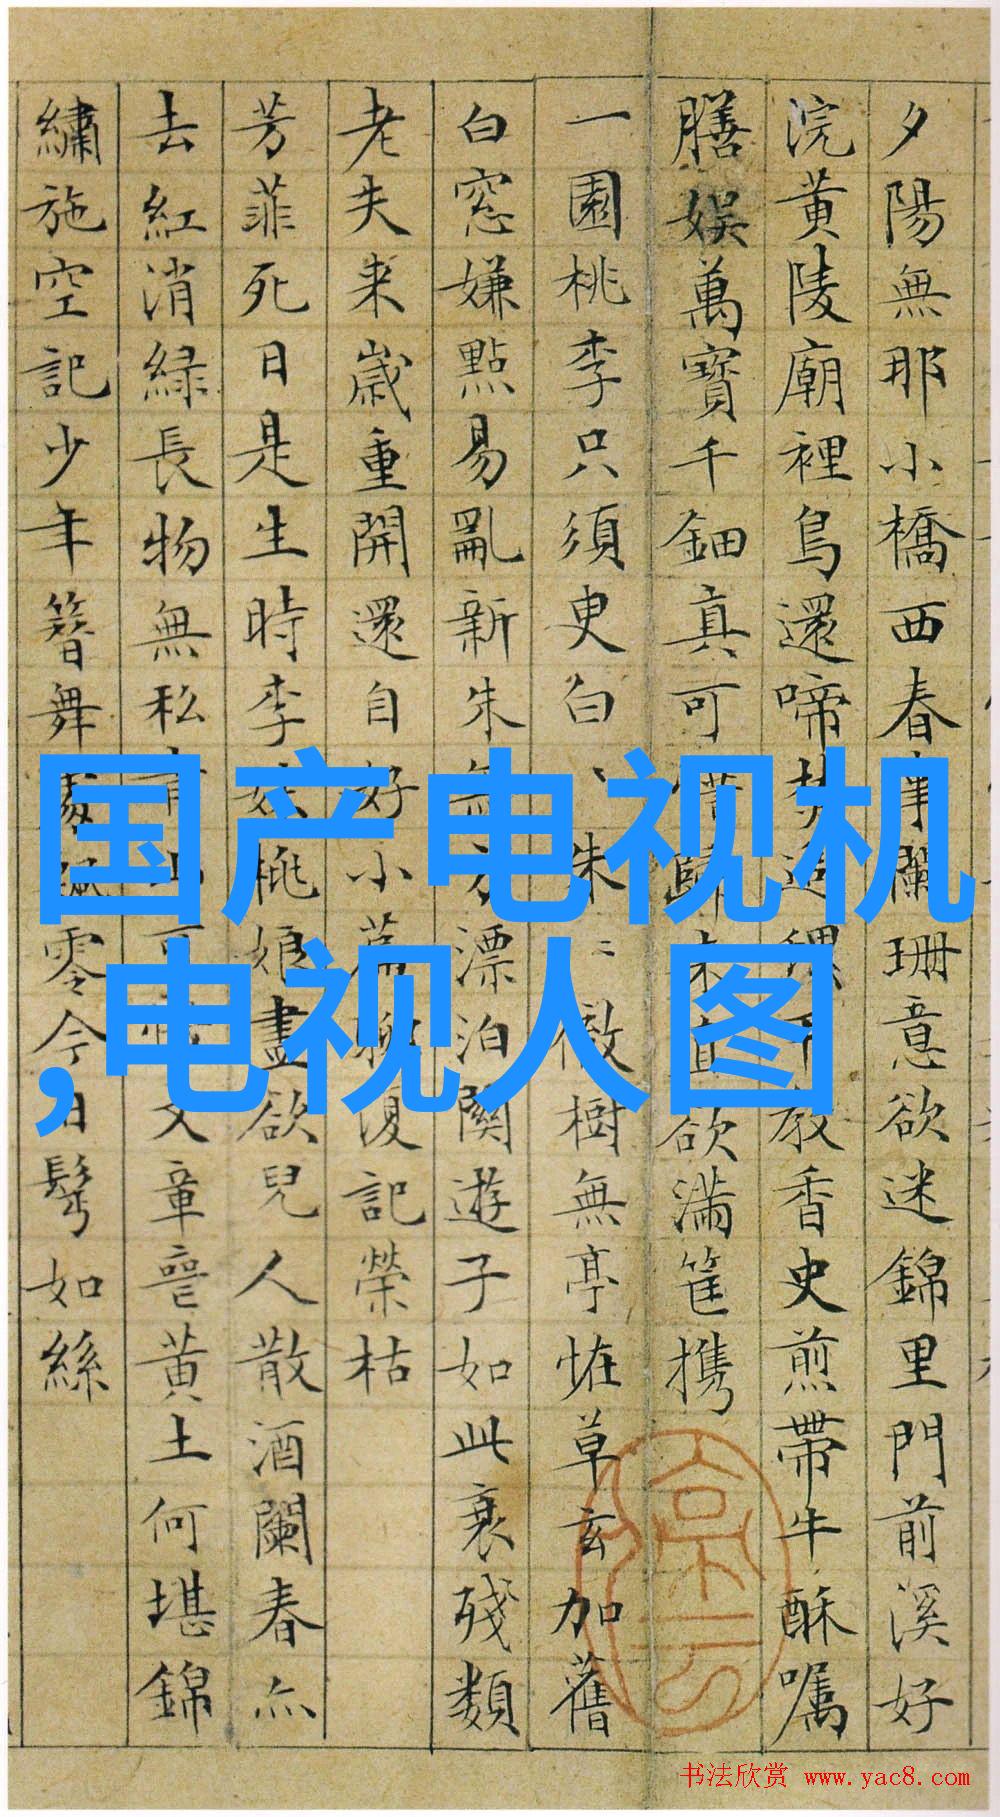 夕陽無那小橋西春事闌珊意欲迷錦里門前溪好
浣黃陵廟裡鳥還啼焚追教香史煎帶牛酥囑
膳娛萬寶千鈿真可惜歸來直欲滿筐攜
一園桃李只須臾白、朱〻徹樹無亭恠草玄加舊
白窓嫌點易亂新朱無方漂泊關遊子如此衰殘類
老夫来歲重開還自好小篇聊復記榮枯
芳菲死日是生時李妹桃娘盡欲兒人散酒闌春亦
去紅消緑長物無私青山可惜文章喪黃土何堪錦
繡施空記少年簪舞處飄零今日鬢如絲
国产电视机
,电视人图
书法欣赏 www.yac8.com